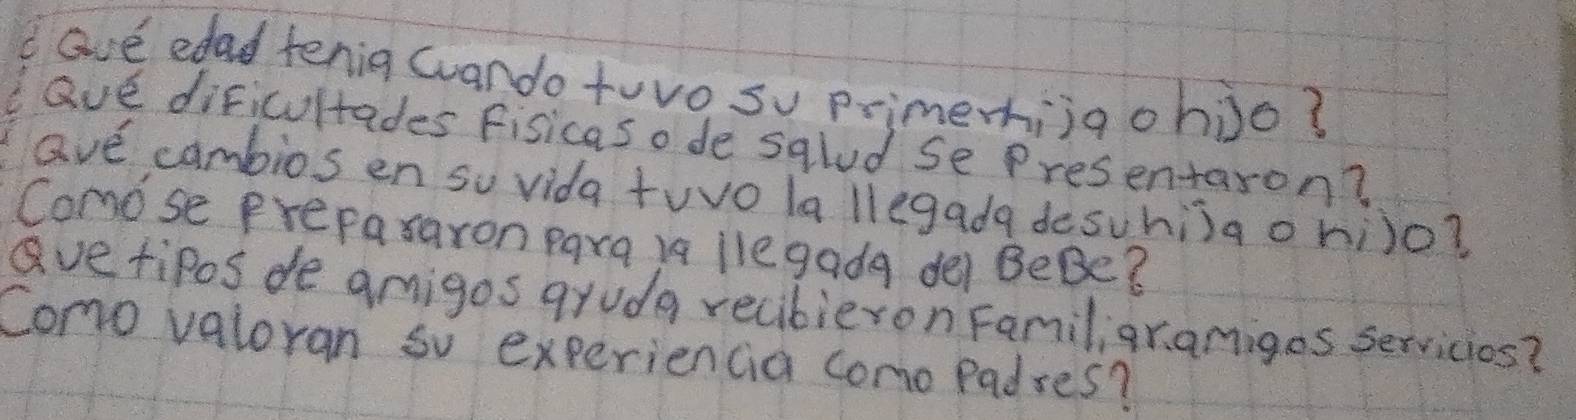 ¿Qué edad tenia cuando tuvo su primer hija o hijo?
¿Qué dificultades Fisicas o de salud se Presentaron?
¿Qué cambios en su vida tuvo la llegada de su hija o hijo?
Comó se Prepararon para la llegada del BeBe?
Que tipos de amigos ayuda recibieron Familiar.amigos servicios?
Como valoran su experiencia como Padres?